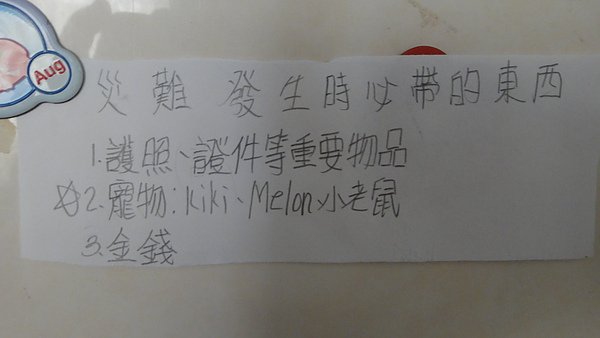 Aug
災難發生時必帶的東西
1.護照、證件等重要物品
☆2.寵物:kiki、Melon、小老鼠
3.金錢